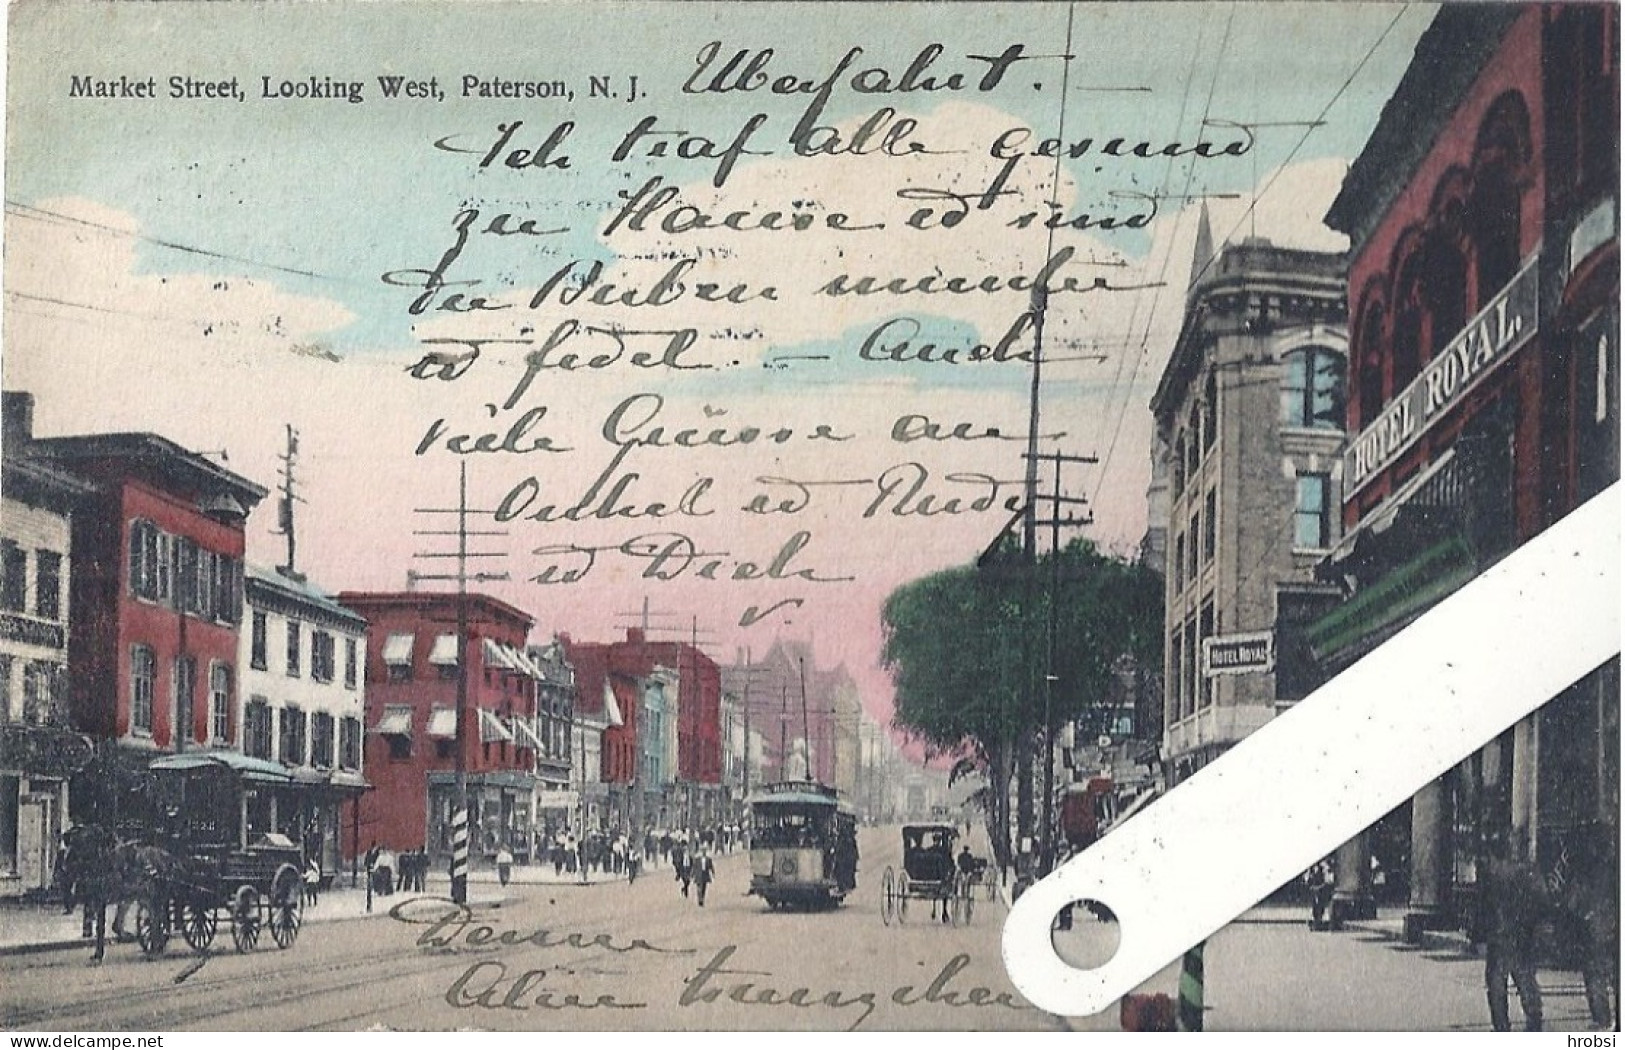 Market Street, Looking West, Paterson, N. J.
Überfahrt. —
Ich traf alle gesund
zu Hause u sind
die Buben munter
u fidel. — Auch
viele Grüsse an
Onkel u Rudy
u Dich
v.
Deine
HOTEL ROYAL.
HOTEL ROYAL
delcampe.net
hrobsi